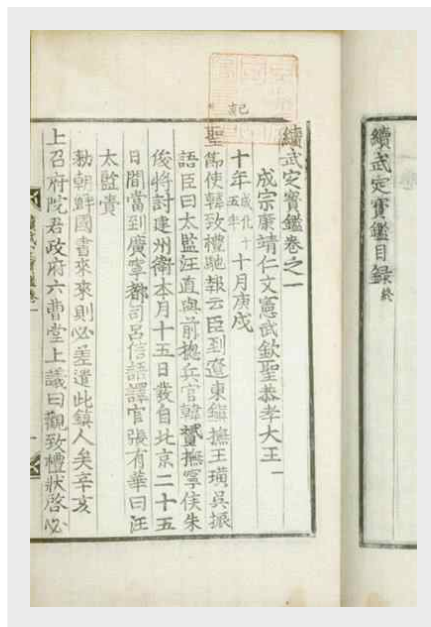 續武定寶鑑目録 終
己亥
續武定寶鑑卷之一
成宗康靖仁文憲武欽聖恭孝大王一
十年成化十五年十月庚戌
聖節使韓致禮馳報云臣到遼東鎭撫王璜吳振
語臣曰太監汪直與前摠兵官韓贇撫寧侯朱
俊將討建州衛本月十五日發自北京二十五
日間當到廣寧都司呂信語譯官張有華曰汪
太監賫
勑朝鮮國書來來則必差遣此鎭人矣辛亥
上召府院君政府六曹堂上議曰觀致禮狀啓必